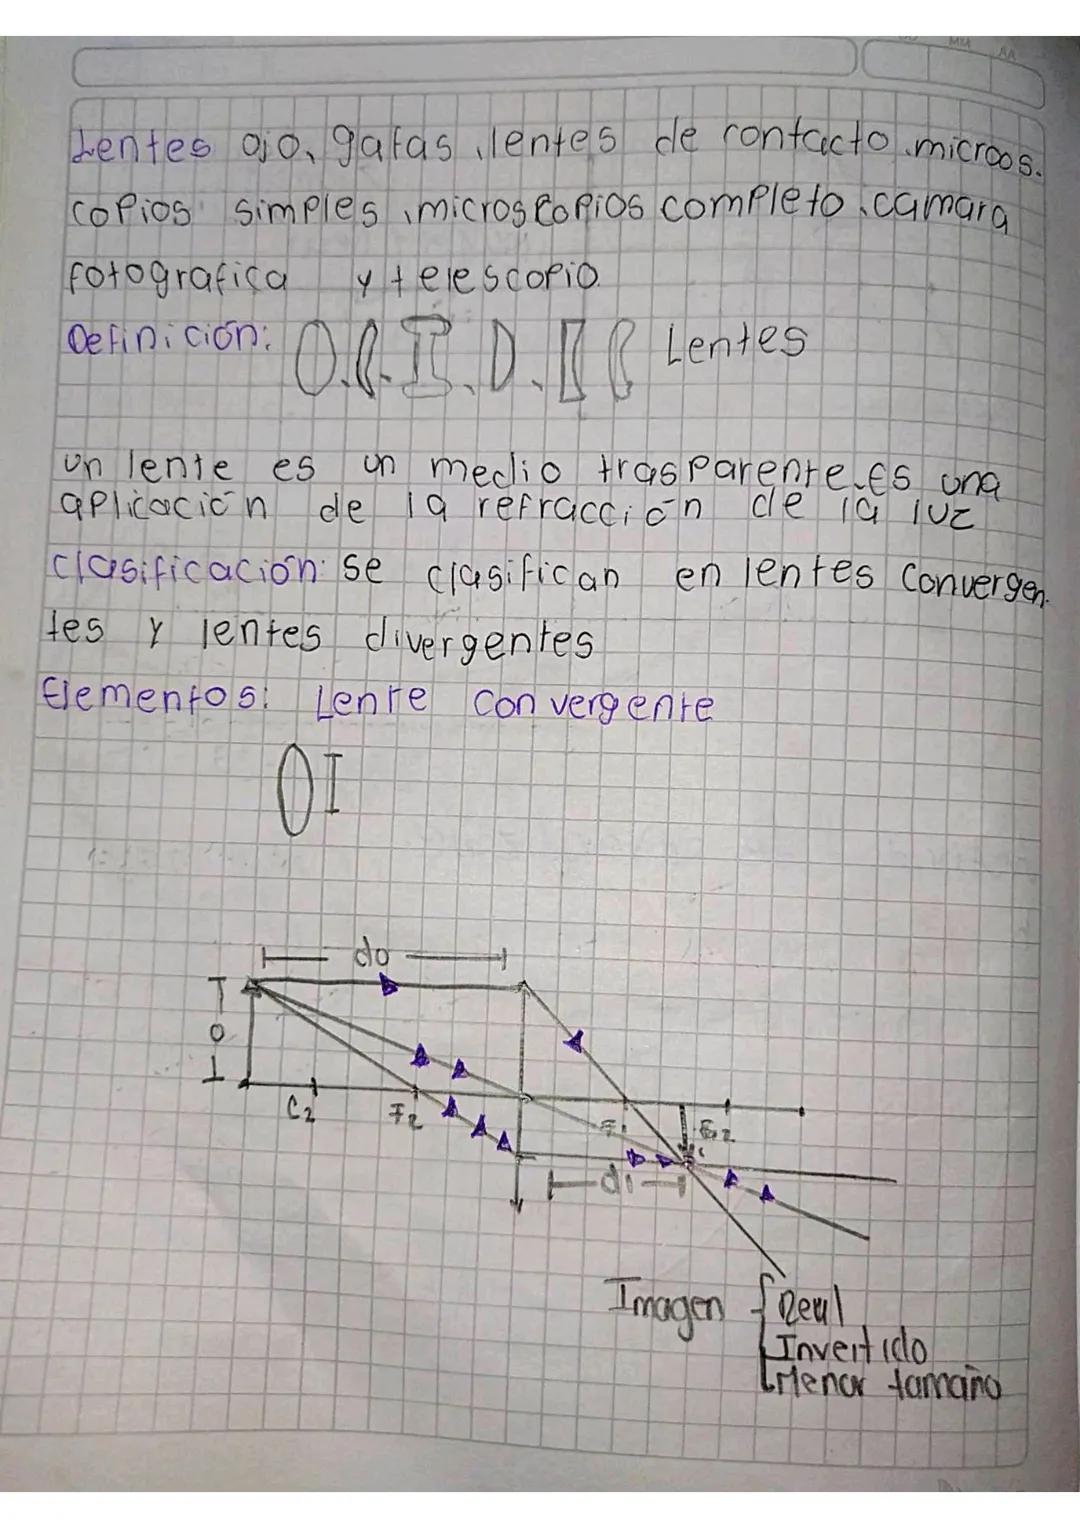 MM AA
Lentes ojo, gafas, lentes de contacto, microos.
copios simples, microscopios completo, camara
fotografica y telescopio.
Definición: Lentes
un lente es un medio trasparente. es una
aplicación de la refracción de la luz
clasificación: se clasifican en lentes convergen.
tes y lentes divergentes
Elementos: Lente convergente
I
do
T
O
I
C2 F2 F1
di
Imagen Real
Invertido
Menor tamaño